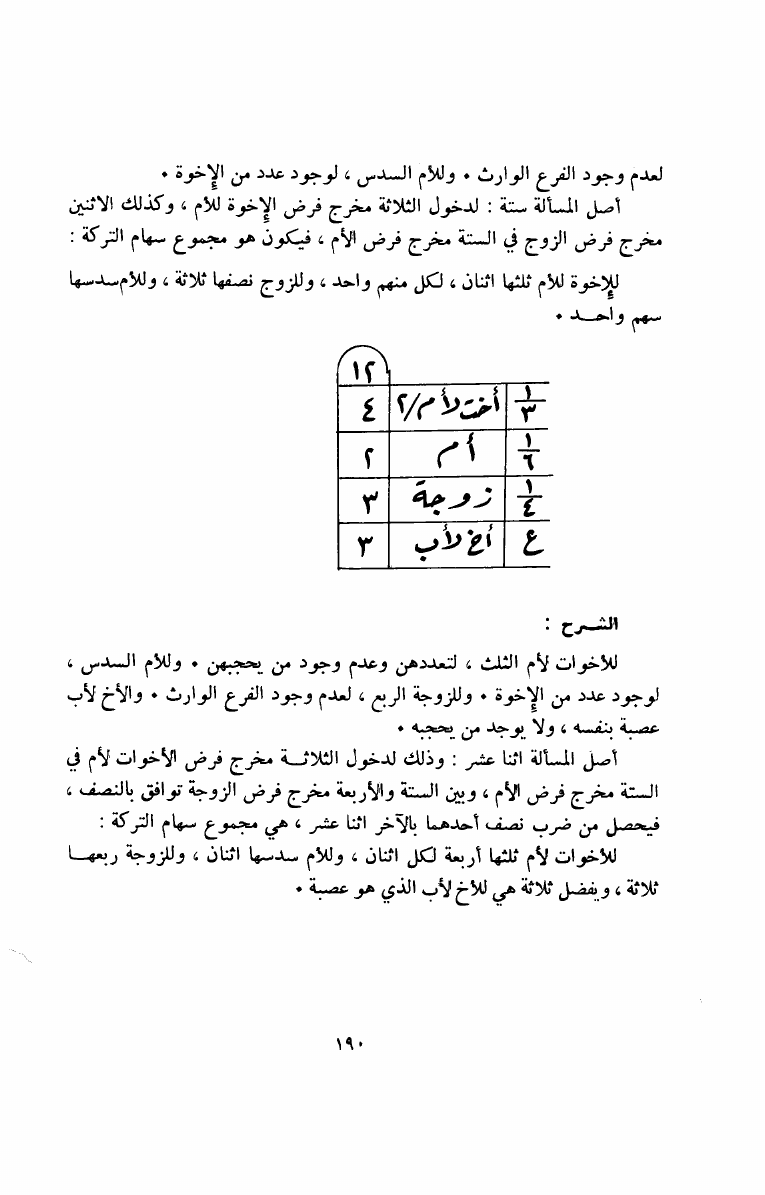 لعدم وجود الفرع الوارث . وللأم السدس ، لوجود عدد من الإخوة .
أصل المسألة ستة : لدخول الثلاثة مخرج فرض الإخوة للأم ، وكذلك الاثنين
مخرج فرض الزوج في الستة مخرج فرض الأم ، فيكون هو مجموع سهام التركة :
للإخوة للأم ثلثها اثنان ، لكل منهم واحد ، وللزوج نصفها ثلاثة ، وللأم سدسها
سهم واحد .
١٢
١/٣ أخت لأم/٢ ٤
١/٦ أم ٢
١/٤ زوجة ٣
ع أخ لأب ٣
الشرح :
للأخوات لأم الثلث ، لتعددهن وعدم وجود من يحجبهن . وللأم السدس ،
لوجود عدد من الإخوة . وللزوجة الربع ، لعدم وجود الفرع الوارث . والأخ لأب
عصبة بنفسه ، ولا يوجد من يحجبه .
أصل المسألة اثنا عشر : وذلك لدخول الثلاثة مخرج فرض الأخوات لأم في
الستة مخرج فرض الأم ، وبين الستة والأربعة مخرج فرض الزوجة توافق بالنصف ،
فيحصل من ضرب نصف أحدهما بالآخر اثنا عشر ، هي مجموع سهام التركة :
للأخوات لأم ثلثها أربعة لكل اثنان ، وللأم سدسها اثنان ، وللزوجة ربعها
ثلاثة ، ويفضل ثلاثة هي للأخ لأب الذي هو عصبة .
١٩٠